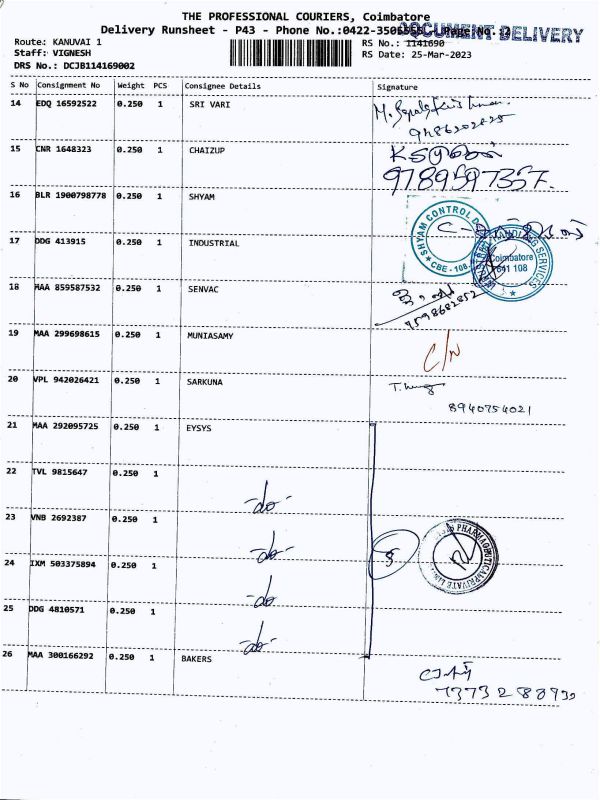 THE PROFESSIONAL COURIERS, Coimbatore
Delivery Runsheet - P43 - Phone No.:0422-3505555 Page No.:2
DOCUMENT DELIVERY
Route: KANUVAI 1
RS No.: 1141690
Staff: VIGNESH
RS Date: 25-Mar-2023
DRS No.: DCJB114169002
S No Consignment No Weight PCS Consignee Details Signature
14 EDQ 16592522 0.250 1 SRI VARI
9486202825
15 CNR 1648323 0.250 1 CHAIZUP
9789597357.
16 BLR 1900798778 0.250 1 SHYAM
SHYAM CONTROL
CBE - 108
17 DDG 413915 0.250 1 INDUSTRIAL
SERVICES
Coimbatore
641 108
18 MAA 859587532 0.250 1 SENVAC
9598682852
19 MAA 299698615 0.250 1 MUNIASAMY
C/N
20 VPL 942026421 0.250 1 SARKUNA
8940754021
21 MAA 292095725 0.250 1 EYSYS
22 TVL 9815647 0.250 1
-do-
23 VNB 2692387 0.250 1
-do-
5
24 IXM 503375894 0.250 1
-do-
25 DDG 4810571 0.250 1
-do-
26 MAA 300166292 0.250 1 BAKERS